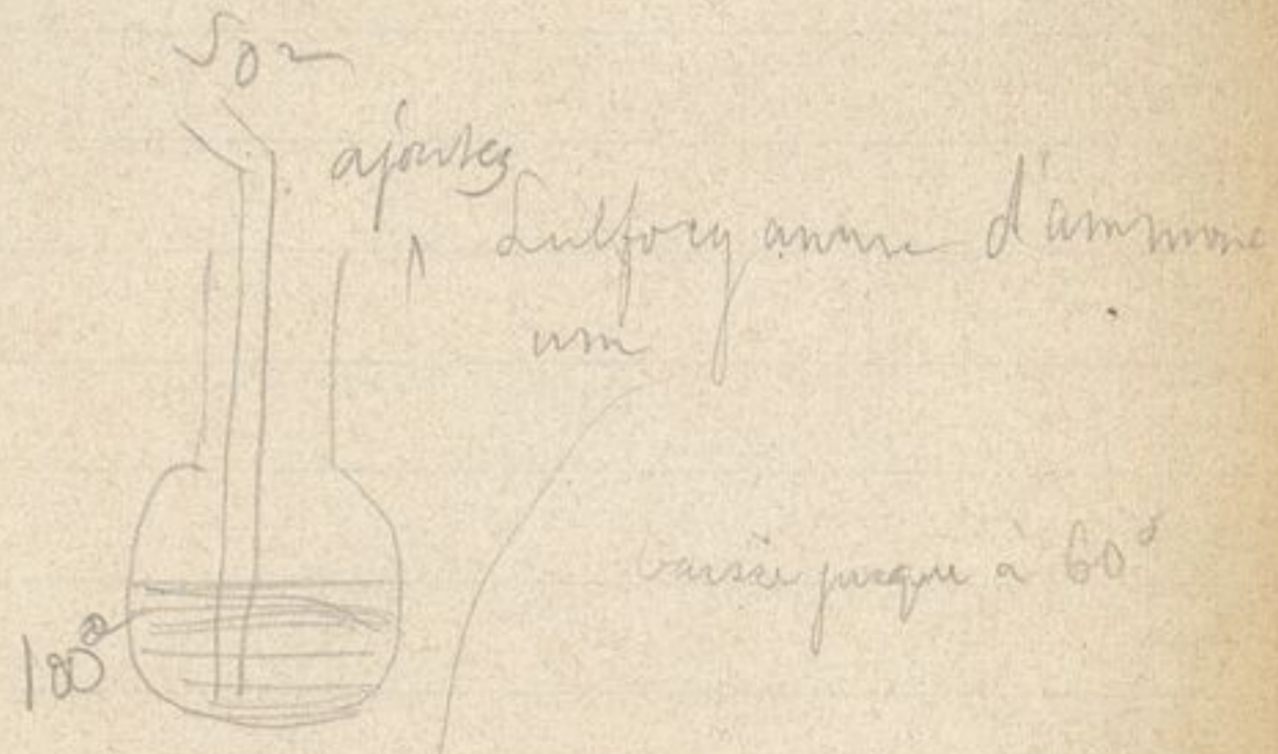 So2
ajoutez
Sulfocyanure d'ammoni
um
baisse jusque à 60°
100°